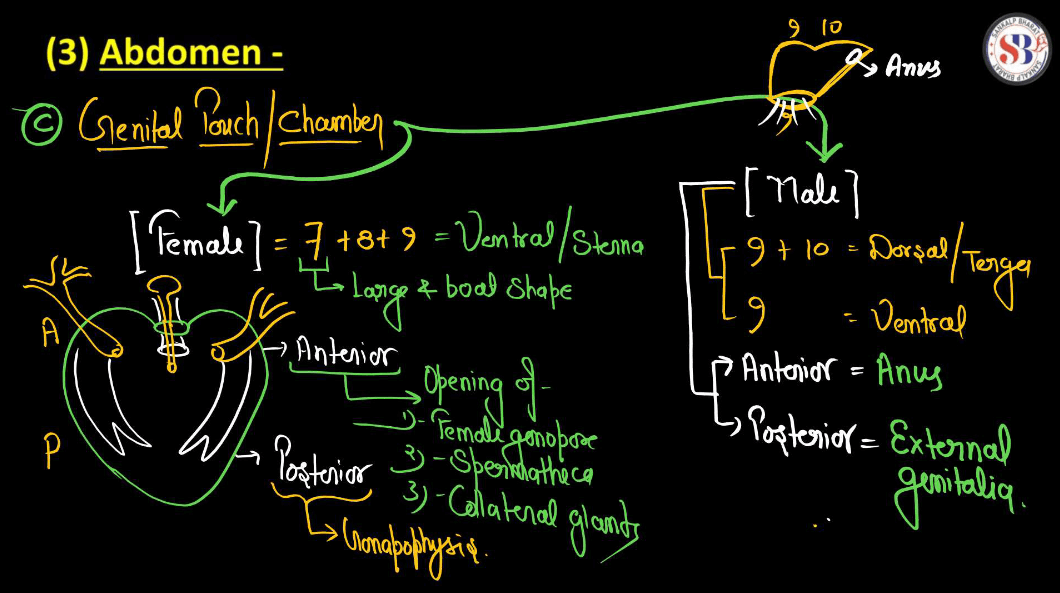 (3) Abdomen -
9 10
Anus
9
SANKALP BHARAT
SB
SANKALP BHARAT
C Genital Pouch/Chamber
[Female] = 7 + 8 + 9 = Ventral/Sterna
Large & boat shape
A
P
Anterior
Opening of -
1) - Female gonopore
2) - Spermatheca
3) - Collateral glands
Posterior
Gonapophysis.
[Male]
9 + 10 = Dorsal/Terga
9 = Ventral
Anterior = Anus
Posterior = External
genitalia.